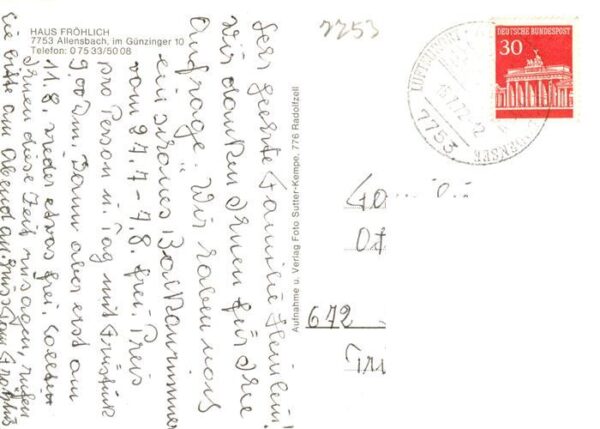 HAUS FRÖHLICH
7753 Allensbach, im Günzinger 10
Telefon: 0 75 33/50 08
7753
Sehr geehrte Familie
Wir danken Ihnen für Ihre
Anfrage. Wir haben noch
ein schönes Balkonzimmer
vom 24.7. - 7.8. frei. Preis
pro Person u. Tag mit Frühstück
9.00 Dm. Dann aber erst am
11.8. wieder etwas frei. Sollte
Ihnen diese Zeit zusagen, rufen
Sie bitte am Abend an.
Aufnahme u. Verlag Foto Sutter-Kempe, 776 Radolfzell
DEUTSCHE BUNDESPOST
30
7753
672